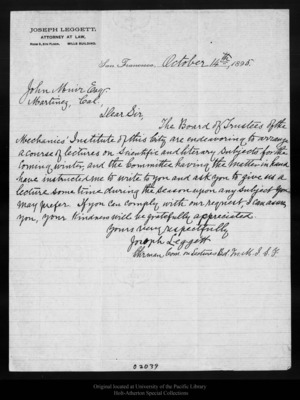 JOSEPH LEGGETT,
ATTORNEY AT LAW,
ROOM 5, 8TH FLOOR, MILLS BUILDING.
San Francisco, October 14th, 1895.
John Muir Esq.
Martinez, Cal,
Dear Sir,
The Board of Trustees of the
Mechanics' Institute of this City are endeavoring to arrange
a course of lectures on Scientific and literary subjects for the
coming winter, and the Committee having the matter in hand
have instructed me to write to you and ask you to give us a
lecture some time during the season upon any subject you
may prefer. If you can comply with our request, I can assure
you, your kindness will be gratefully appreciated.
Yours very respectfully
Joseph Leggett
Chrman. Com. on Lectures
02039
Original located at University of the Pacific Library
Holt-Atherton Special Collections